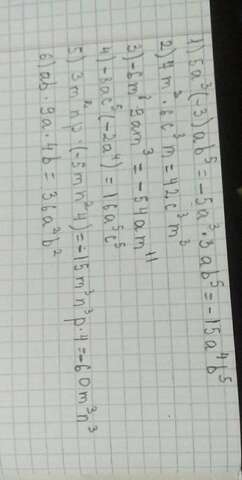 1) 5a³(-3)ab⁵=-5a³·3ab⁵=-15a⁴b⁵
2) 7m²·6c³m=42c³m³
3) -6m⁸·9am³=-54am¹¹
4) -8ac⁵(-2a⁴)=16a⁵c⁵
5) 3m²np·(-5mn²4)=-15m³n³p·4=-60m³n³
6) ab·9a·4b=36a²b²